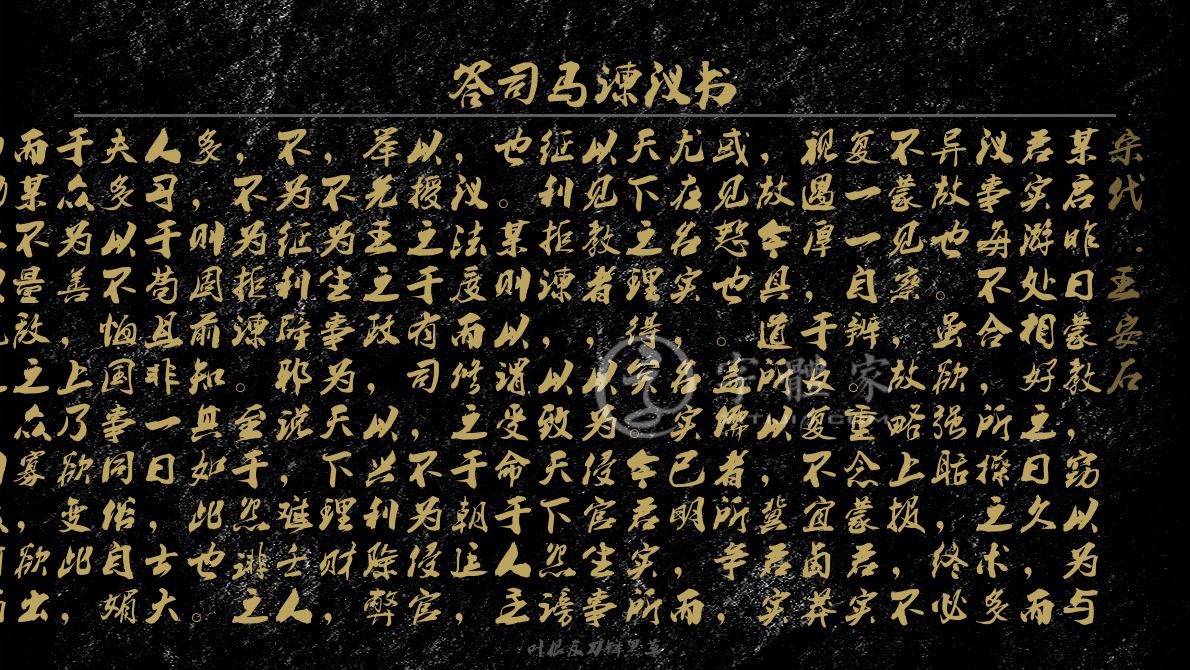 答司马谏议书
宋代·王安石
某启昨日蒙教，窃以为与
君实游处相好之日久，而
议事每不合，所操之术多
异故也。虽欲强聒，终必
不蒙见察，故略上报，不
复一一自辨。重念蒙君实
视遇厚，于反复不宜卤莽
，故今具道所以，冀君实
或见恐也。盖儒者所争，
尤在名实，名实已明，而
天下之理得以。今君实所
以见教者，以为侵官生事
征利拒谏，以致天下怨谤
也。某则以谓受命于人王
，议法度而修之于朝廷，
以授之于有司，不为侵官
举先王之政，以兴利除弊
，不为生事，为天下理财，
不为征利，辟邪说，难壬人
，不为拒谏。至于怨诽之
多，则周前知其如此也。
人习于苟且非一日，士大
夫多以不恤国事同俗自媚
于众为善，上乃欲变此，
而某不量敌之众寡，欲出
字體家